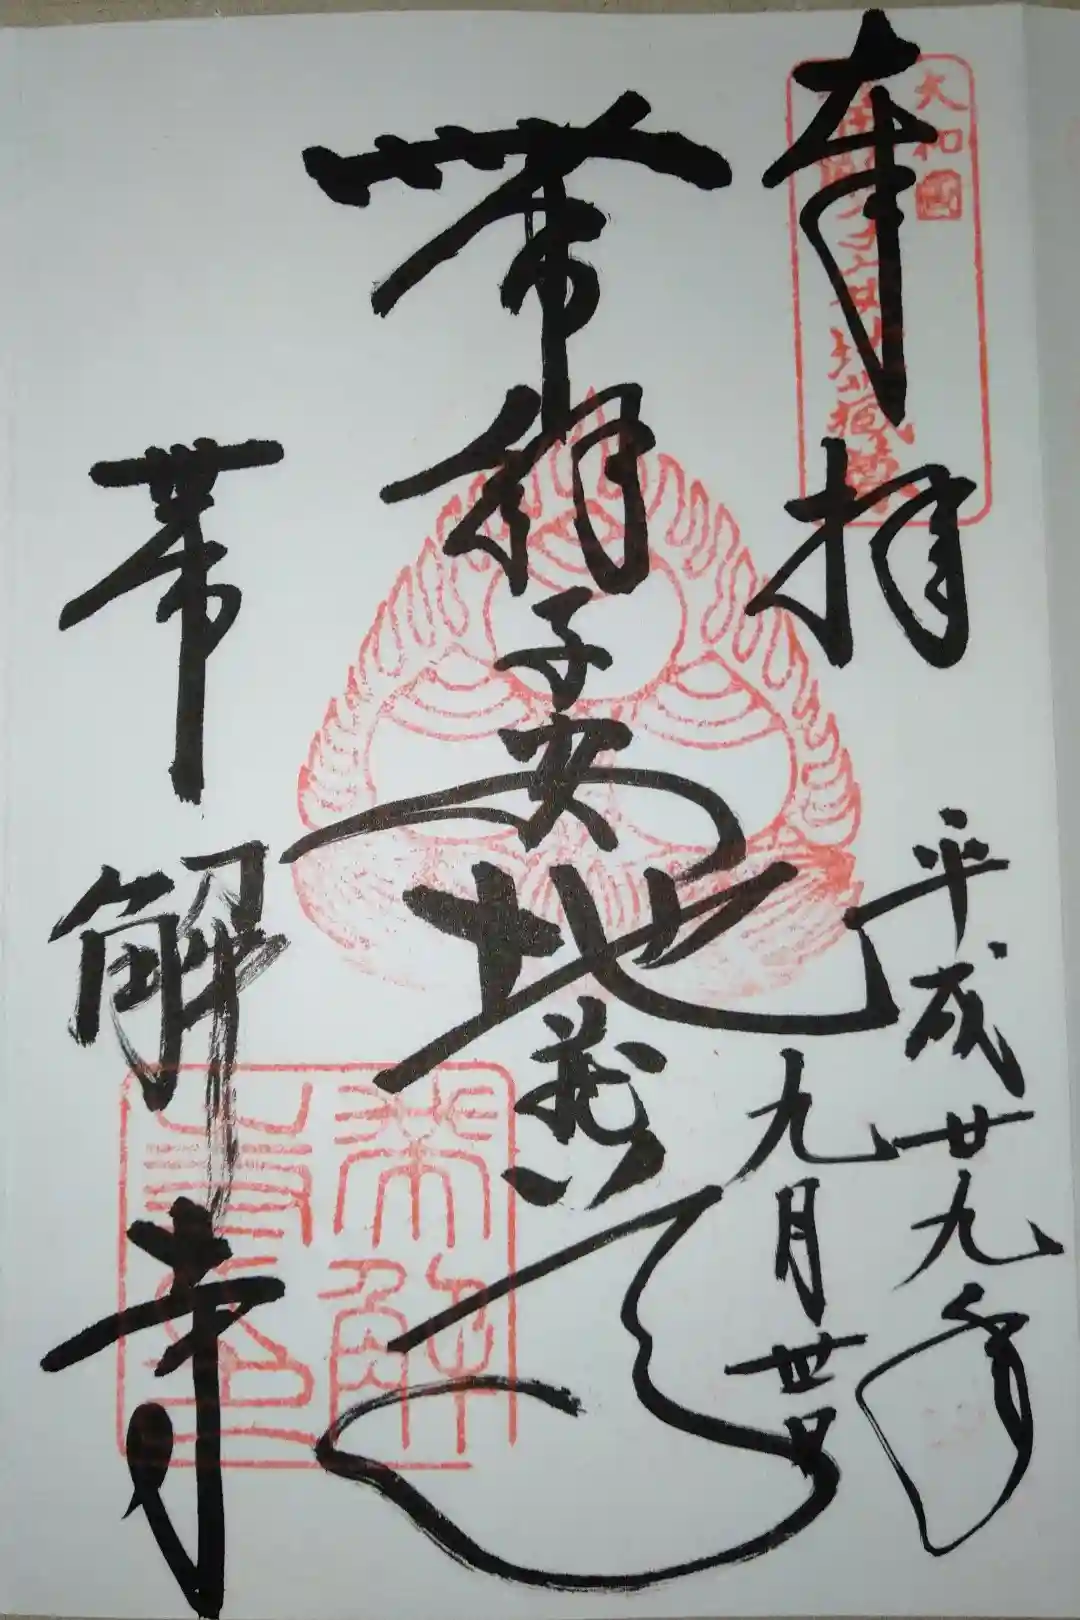 奉拝
大和国
平成廿九年
九月丗日
帯解子安地蔵
帯解寺
帯解